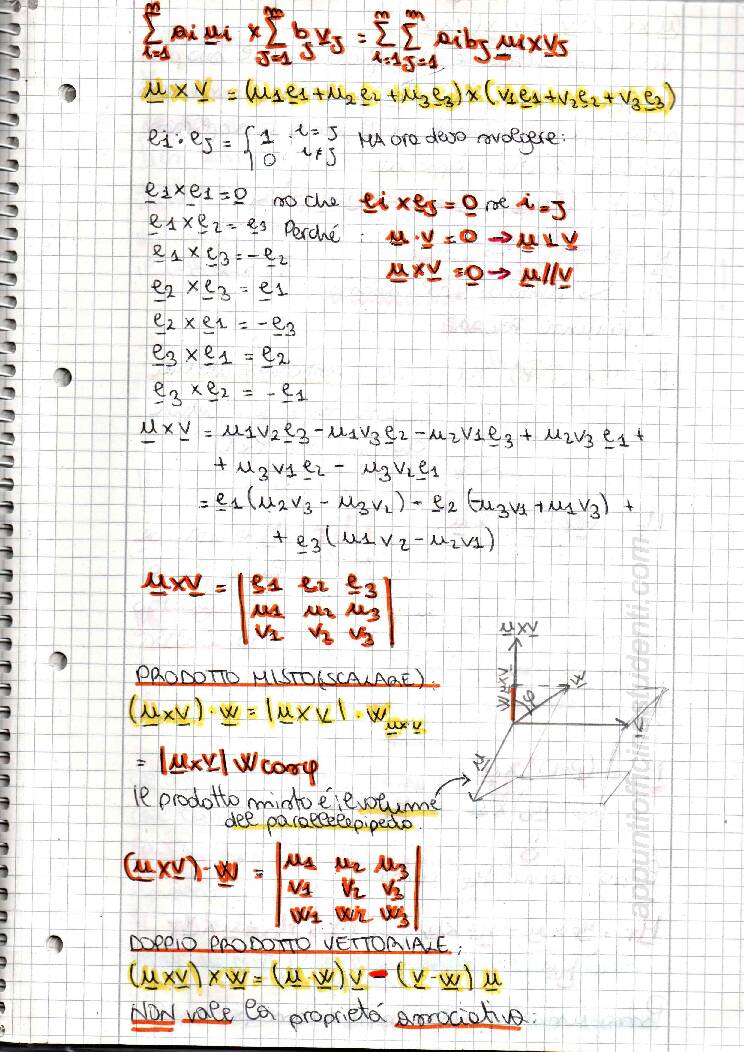 m∑i=1 ai u̲i × m∑J=1 bJ v̲J = m∑i=1 m∑J=1 aibJ u̲i×v̲J
u̲ × v̲ = (u1e̲1+u2e̲2+u3e̲3)×(v1e̲1+v2e̲2+v3e̲3)
ei·eJ = { 1 i=J MA ora devo svolgere:
0 i≠J
e̲1×e̲1=0̲ so che e̲i×e̲J=0̲ se i=J
e̲1×e̲2=e̲3 Perché: u̲·v̲=0→u̲⊥v̲
e̲1×e̲3=-e̲2 u̲×v̲=0̲→u̲//v̲
e̲2×e̲3=e̲1
e̲2×e̲1=-e̲3
e̲3×e̲1=e̲2
e̲3×e̲2=-e̲1
u̲×v̲ = u1v2e̲3-u1v3e̲2-u2v1e̲3+u2v3e̲1+
+u3v1e̲2-u3v2e̲1
=e̲1(u2v3-u3v2)-e̲2(-u3v1+u1v3)+
+e̲3(u1v2-u2v1)
u̲×v̲ = | e̲1 e̲2 e̲3 |
| u1 u2 u3 |
| v1 v2 v3 |
u̲×v̲
PRODOTTO MISTO(SCALARE):
w̲
Wu×v
φ
(u̲×v̲)·w̲=|u̲×v̲|·Wu̲×v̲
v̲
=|u̲×v̲|Wcosφ
u̲
il prodotto misto é il volume
del parallelepipedo.
(u̲×v̲)·w̲ = | u1 u2 u3 |
| v1 v2 v3 |
| w1 w2 w3 |
DOPPIO PRODOTTO VETTORIALE:
(u̲×v̲)×w̲=(u̲·w̲)v̲-(v̲·w̲)u̲
NON vale la proprietá associativa:
appuntiofficinastudenti.com